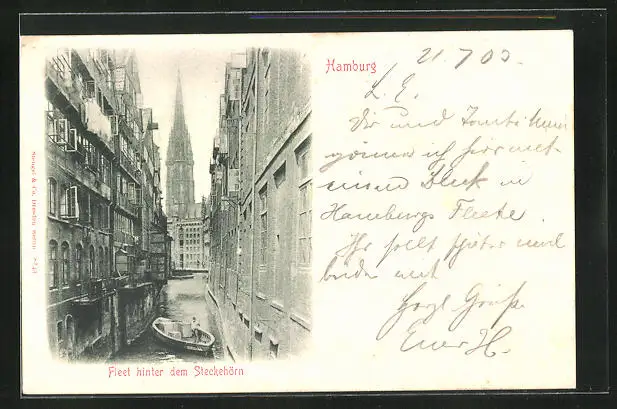 Hamburg
21. 7 00.
L. E.
Dir und Tante
gönne ich hier mal
einen Blick in
Hamburgs Fleete
Ihr sollt später mal
beide mit
Herzl Grüße
Euer H.
Fleet hinter dem Steckehörn
Stengel & Co., Dresden